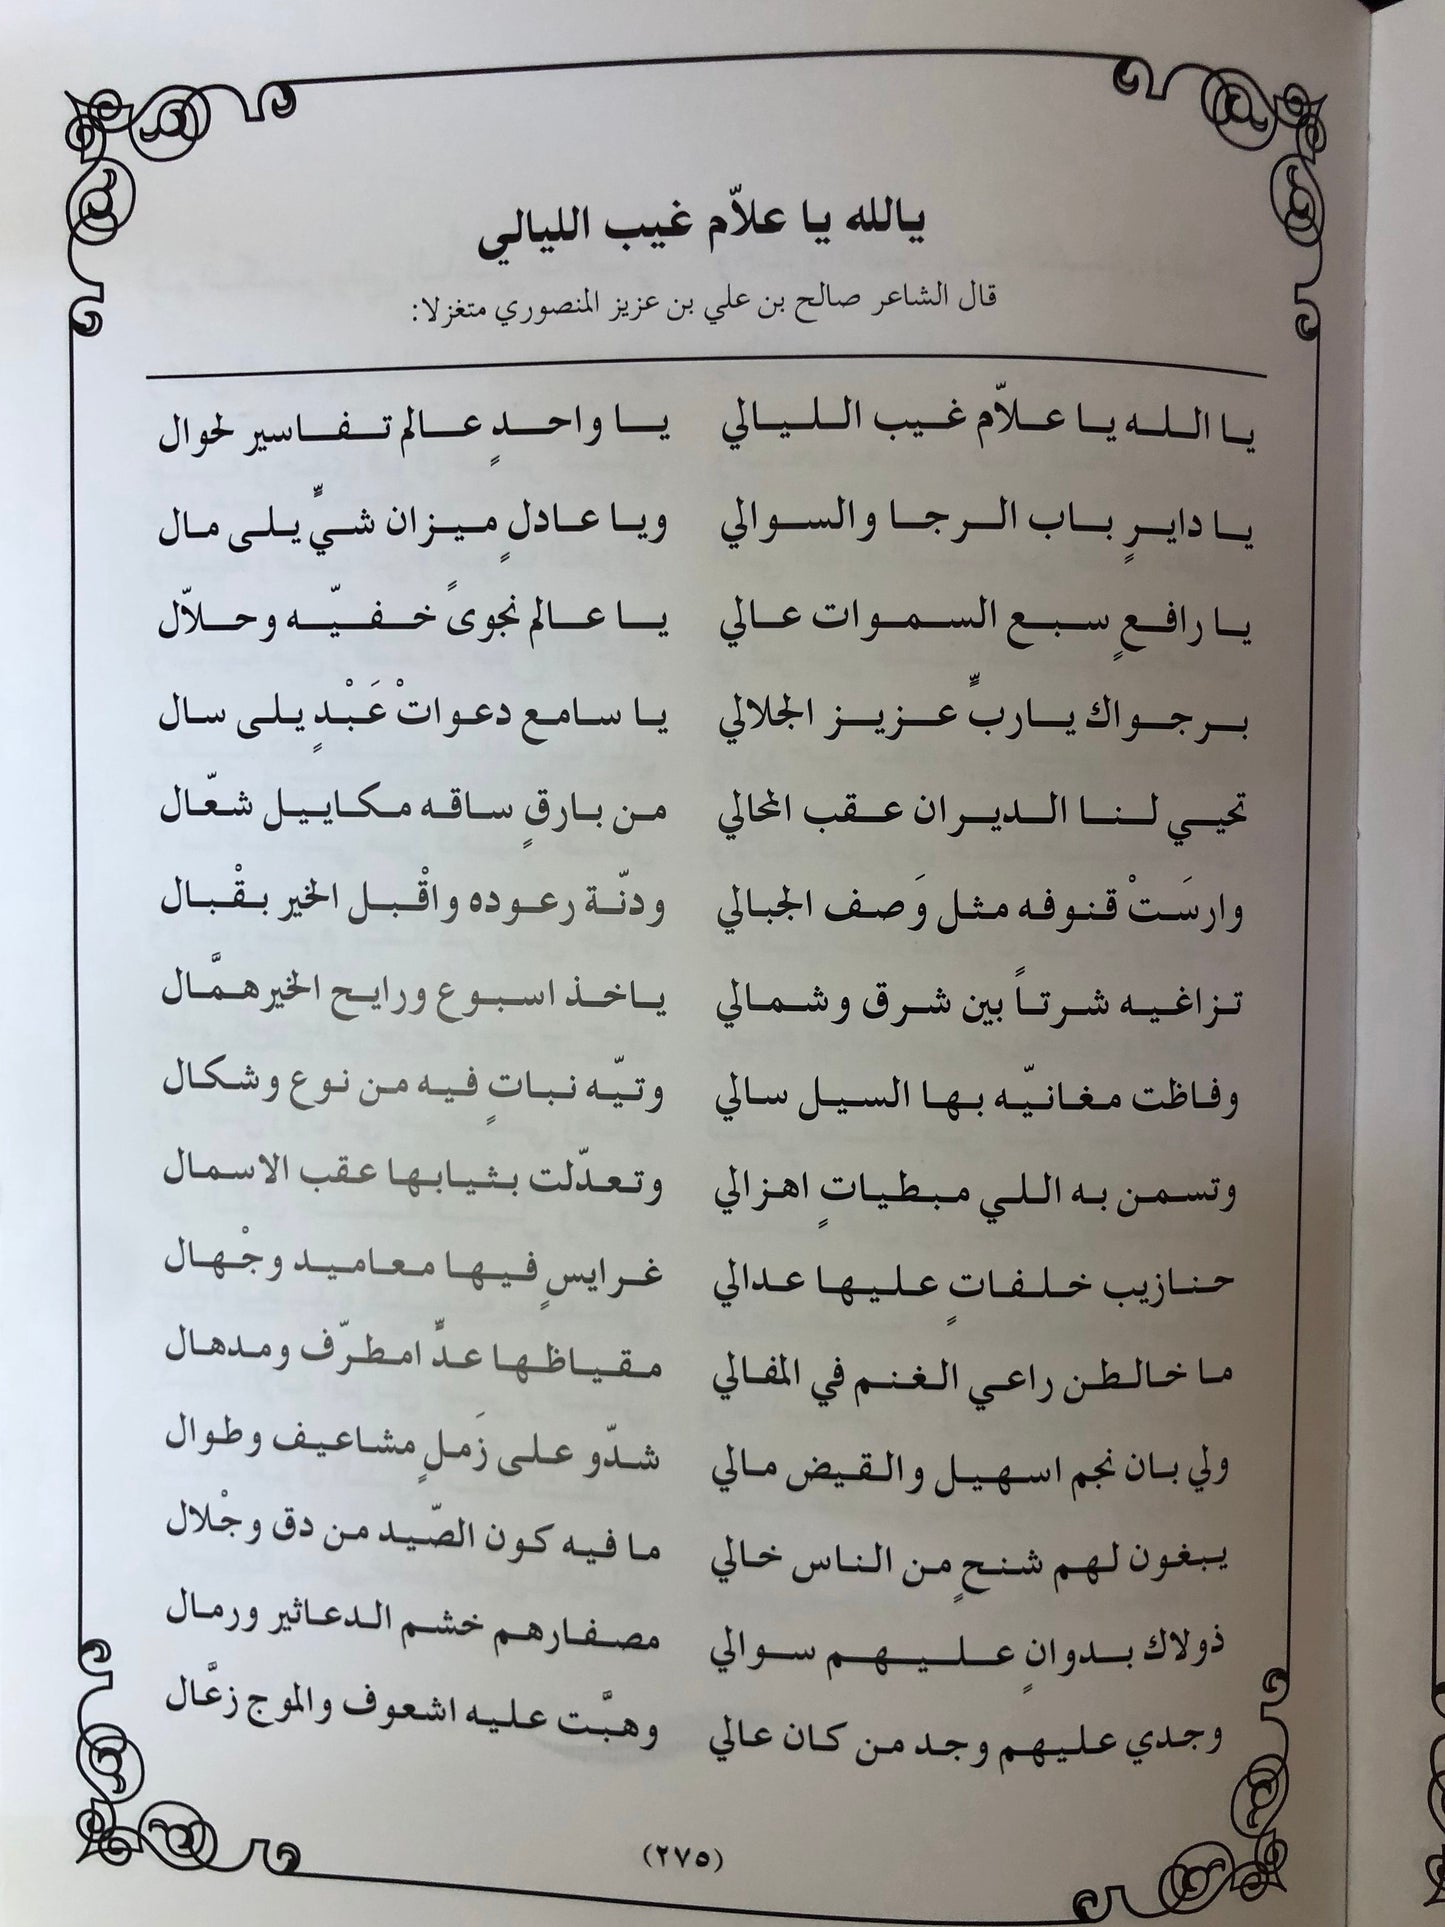 يالله يا علاّم غيب الليالي
قال الشاعر صالح بن علي بن عزيز المنصوري متغزلا:
يا الله يا علاّم غيب الليالي يا واحدٍ عالم تفاسير لحوال
يا دايرٍ باب الرجا والسوالي ويا عادلٍ ميزان شيٍّ يلى مال
يا رافعٍ سبع السموات عالي يا عالم نجوىً خفيّه وحلاّل
برجواك يا ربٍّ عزيز الجلالي يا سامع دعواتْ عَبْدٍ يلى سال
تحيي لنا الديران عقب المحالي من بارقٍ ساقه مكاييل شعّال
وارسَتْ قنوفه مثل وَصف الجبالي ودنّة رعوده واقْبل الخير بقْبال
تزاغيه شرتاً بين شرق وشمالي ياخذ اسبوع ورايح الخير همَّال
وفاظت مغانيّه بها السيل سالي وتيّه نباتٍ فيه من نوع وشكال
وتسمن به اللي مبطياتٍ اهزالي وتعدّلت بثيابها عقب الاسمال
حنازيب خلفاتٍ عليها عدالي غرايسٍ فيها معاميد وجْهال
ما خالطن راعي الغنم في المفالي مقياظها عدٍّ امطرّف ومدهال
ولي بان نجم اسهيل والقيض مالي شدّو على زَملٍ مشاعيف وطوال
يبغون لهم شنحٍ من الناس خالي ما فيه كون الصّيد من دق وجْلال
ذولاك بدوانٍ عليهم سوالي مصفارهم خشم الدعاثير ورمال
وجدي عليهم وجد من كان عالي وهبَّت عليه اشعوف والموج زعَّال
(٢٧٥)